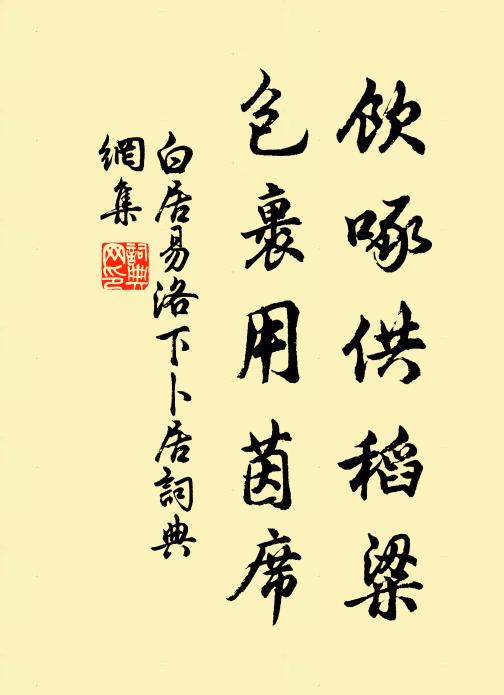 飲啄供稻粱
包裹用茵席
白居易洛下卜居詞典
網集
詞典
网印